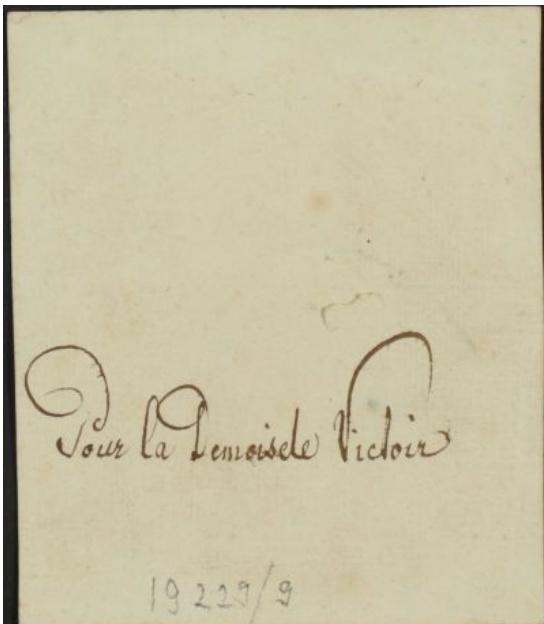 Pour la Demoisele Victoir
19229/9